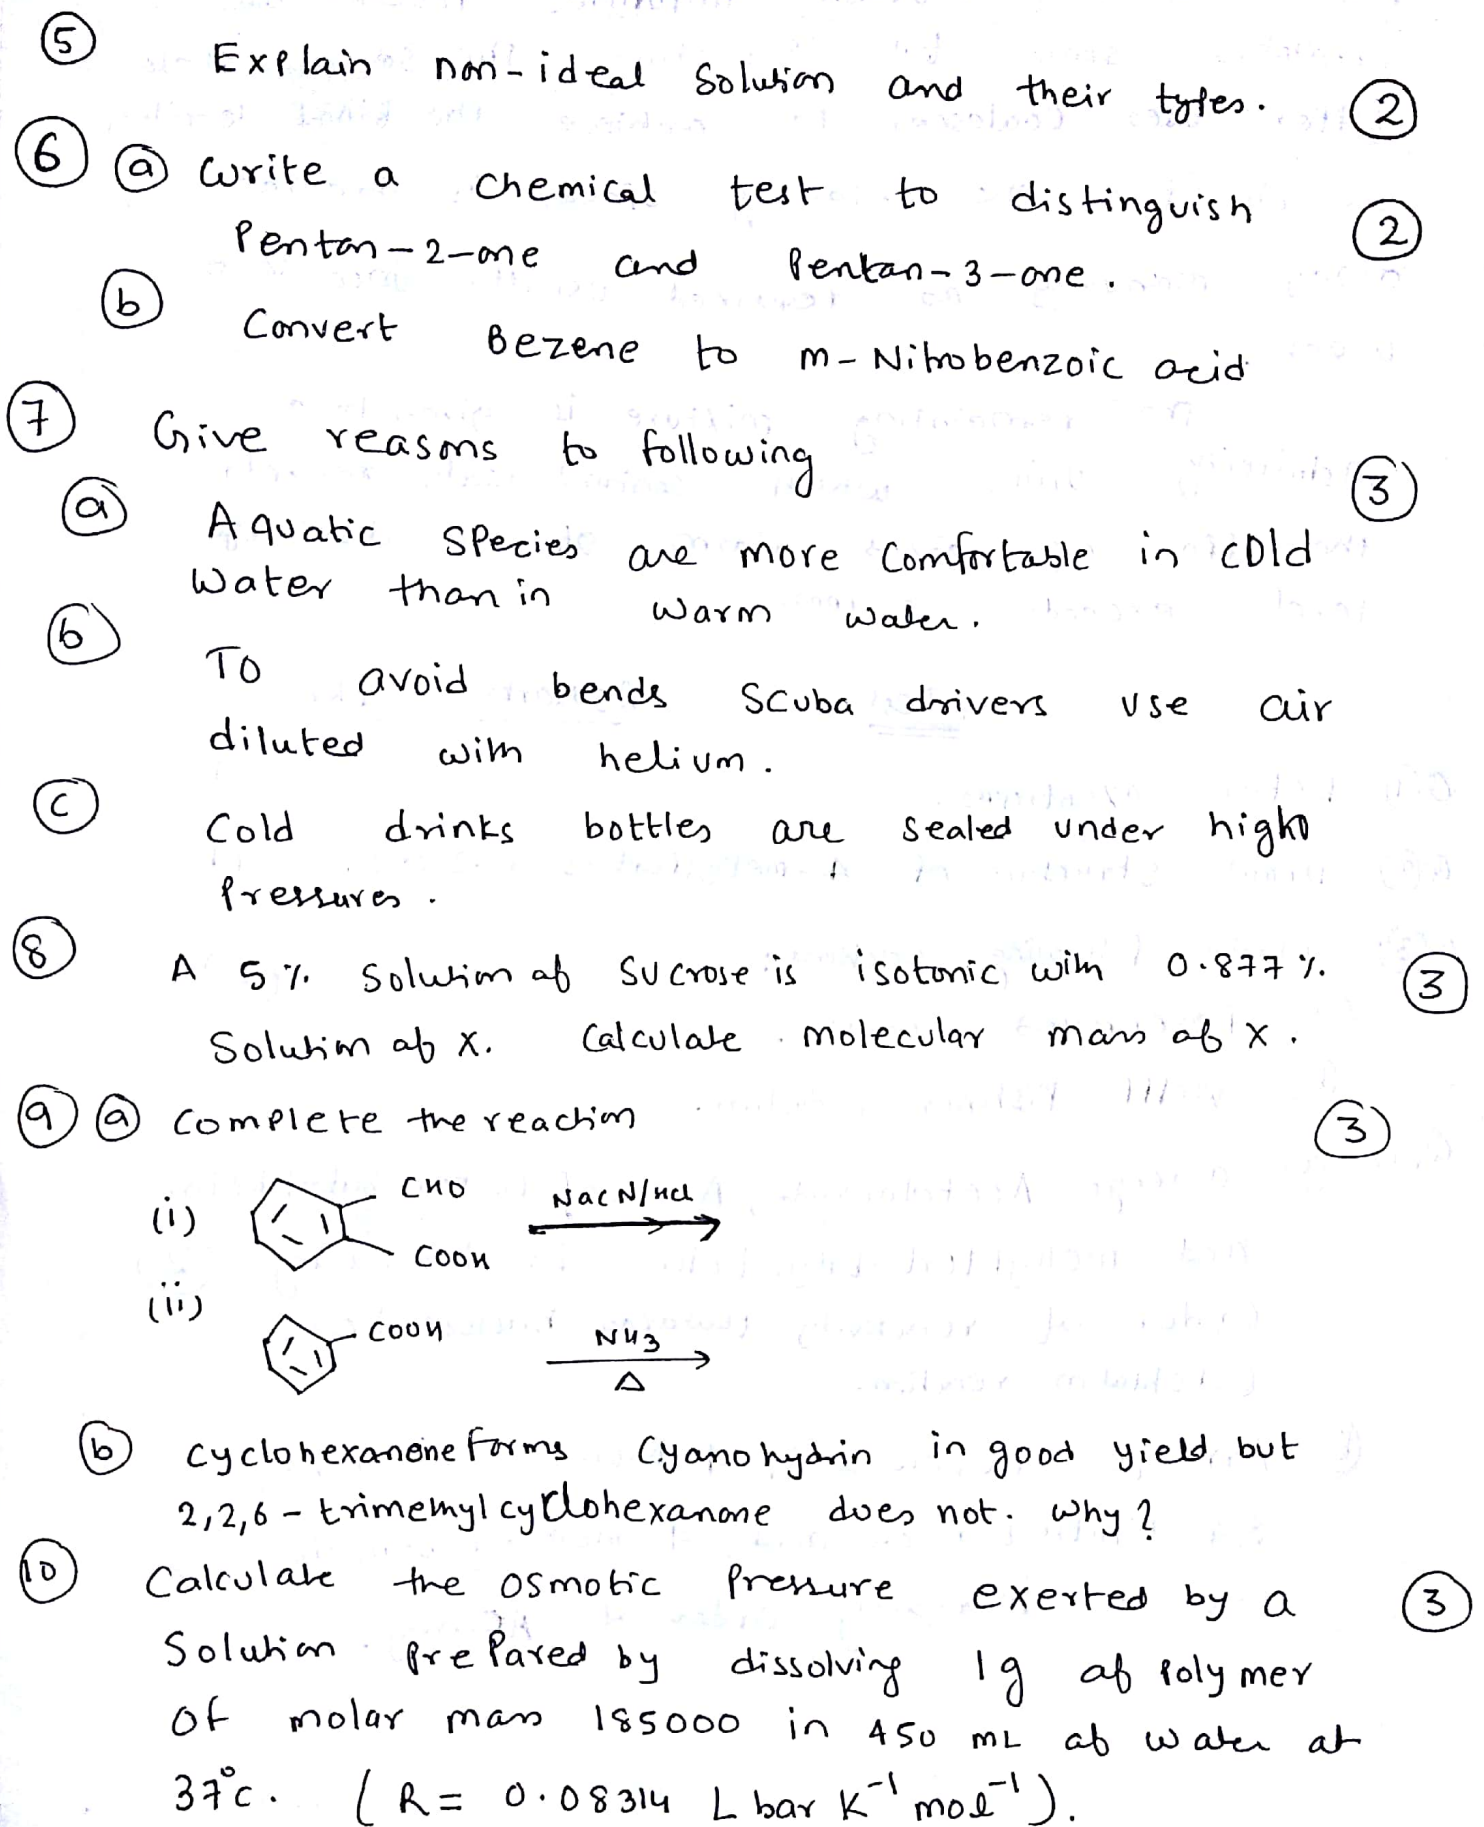 5 Explain non-ideal Solution and their types. 2
6 a Write a chemical test to distinguish 2
Pentan-2-one and Pentan-3-one.
b Convert Bezene to m-Nitrobenzoic acid
7 Give reasons to following
a Aquatic Species are more Comfortable in cold 3
Water than in warm water.
b To avoid bends Scuba drivers use air
diluted with helium.
c Cold drinks bottles are sealed under high
Pressures.
8 A 5% Solution of Sucrose is isotonic with 0.877% 3
Solution of X. Calculate molecular mass of X.
9 a Complete the reaction 3
(i) CHO NaCN/HCl
COOH
(ii) COOH NH3
Δ
b Cyclohexanone forms Cyanohydrin in good yield but
2,2,6-trimethylcyclohexanone does not. Why?
10 Calculate the osmotic Pressure exerted by a 3
Solution Prepared by dissolving 1g of Polymer
of molar mass 185000 in 450 mL of water at
37°C. (R = 0.08314 L bar K⁻¹ mol⁻¹).